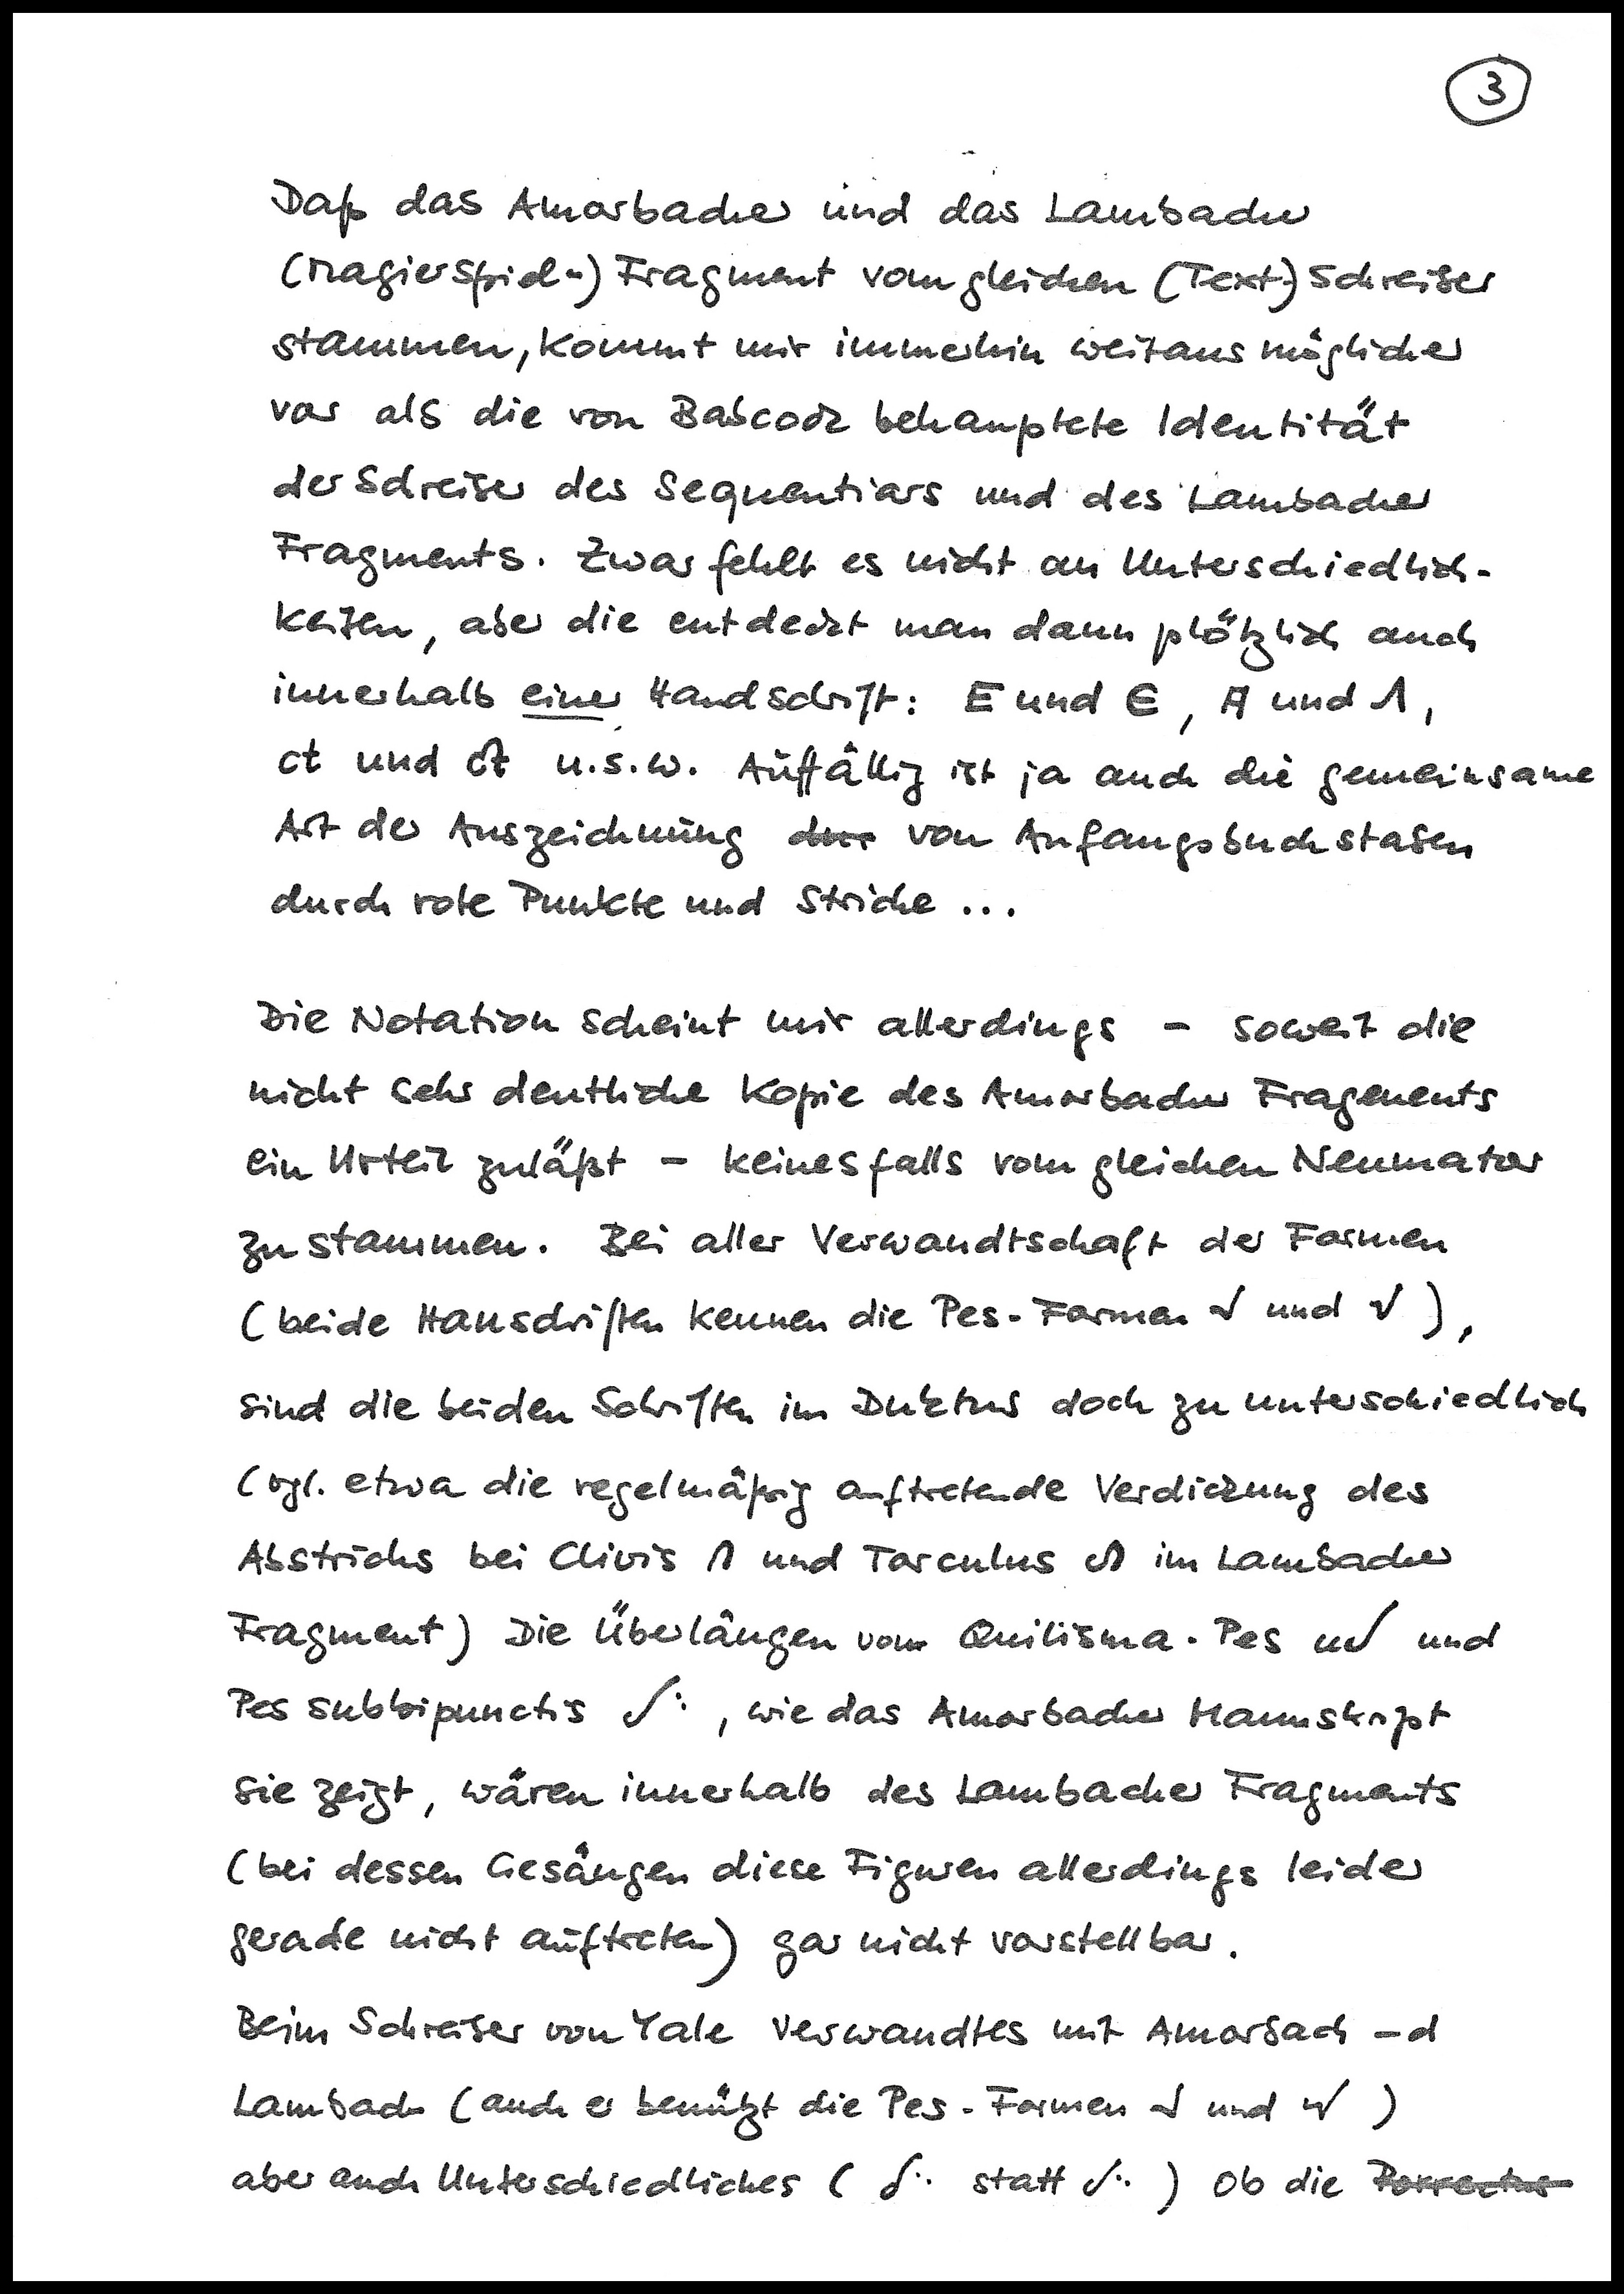 3
Daß das Amorbacher und das Lambacher
(Magierspiel-) Fragment vom gleichen (Text-) Schreiber
stammen, kommt mir immerhin weitaus möglicher
vor als die von Babcock behauptete Identität
der Schreiber des Sequentiars und des Lambacher
Fragments. Zwar fehlt es nicht an Unterschiedlich-
keiten, aber die entdeckt man dann plötzlich auch
innerhalb einer Handschrift: E und Є, A und Λ,
ct und u.s.w. Auffällig ist ja auch die gemeinsame
Art der Auszeichnung von Anfangsbuchstaben
durch rote Punkte und Striche ...
Die Notation scheint mir allerdings - soweit die
nicht sehr deutliche Kopie des Amorbacher Fragements
ein Urteil zuläßt - keinesfalls vom gleichen Neumator
zu stammen. Bei aller Verwandtschaft der Formen
(beide Hanschriften kennen die Pes-Formen und ),
sind die beiden Schriften im Duktus doch zu unterschiedlich
(vgl. etwa die regelmäßig auftretende Verdickung des
Abstrichs bei Clivis und Torculus im Lambacher
Fragment) Die Überlängen vom Quilisma-Pes und
Pes subbipunctis , wie das Amorbacher Manuskript
sie zeigt, wären innerhalb des Lambacher Fragments
(bei dessen Gesängen diese Figuren allerdings leider
gerade nicht auftreten) gar nicht vorstellbar.
Beim Schreiber von Yale Verwandtes mit Amorbach -d
Lambach (auch er benützt die Pes-Formen und )
aber auch Unterschiedliches ( statt ) Ob die Porrectus